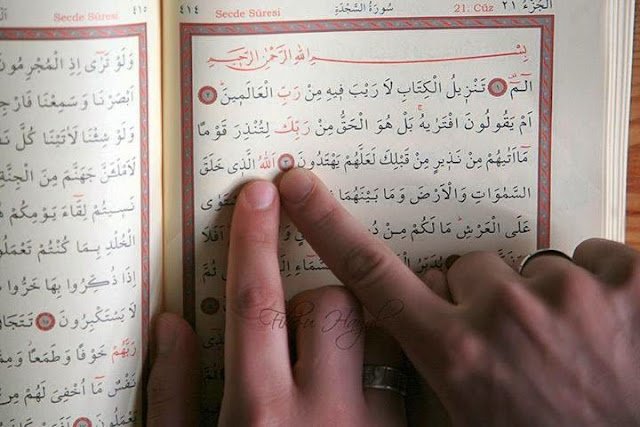 الجزء ٢١ 21. Cüz سُورَةُ السَّجْدَةِ Secde Sûresi ٤١٤
بِسْمِ اللهِ الرَّحْمٰنِ الرَّحِيمِ
الٓمٓ ١ تَنْزِيلُ الْكِتَابِ لَا رَيْبَ فِيهِ مِنْ رَبِّ الْعَالَمِينَ ٢
اَمْ يَقُولُونَ افْتَرٰيهُ بَلْ هُوَ الْحَقُّ مِنْ رَبِّكَ لِتُنْذِرَ قَوْمًا
مَٓا اَتٰيهُمْ مِنْ نَذِيرٍ مِنْ قَبْلِكَ لَعَلَّهُمْ يَهْتَدُونَ ٣ اَللهُ الَّذِي خَلَقَ
السَّمٰوَاتِ وَالْاَرْضَ وَمَا بَيْنَهُمَا
عَلَى الْعَرْشِ مَا لَكُمْ مِنْ اَفَلَا
يُدَبِّرُ ثُمَّ
Secde Sûresi ٤١٥
وَلَوْ تَرٰٓى اِذِ الْمُجْرِمُونَ
اَبْصَرْنَا وَسَمِعْنَا فَارْجِ
وَلَوْ شِئْنَا لَاٰتَيْنَا كُلَّ نَ
لَاَمْلَئَنَّ جَهَنَّمَ مِنَ الْجِنَّةِ
نَسِيتُمْ لِقَٓاءَ يَوْمِكُمْ هٰ
الْخُلْدِ بِمَا كُنْتُمْ تَعْمَلُو
اِذَا ذُكِّرُوا بِهَا خَرُّوا
لَا يَسْتَكْبِرُونَ تَتَجَا
رَبَّهُمْ خَوْفًا وَطَمَعًا وَ
نَفْسٌ مَٓا اُخْفِيَ لَهُمْ مِنْ
يَعْمَلُونَ